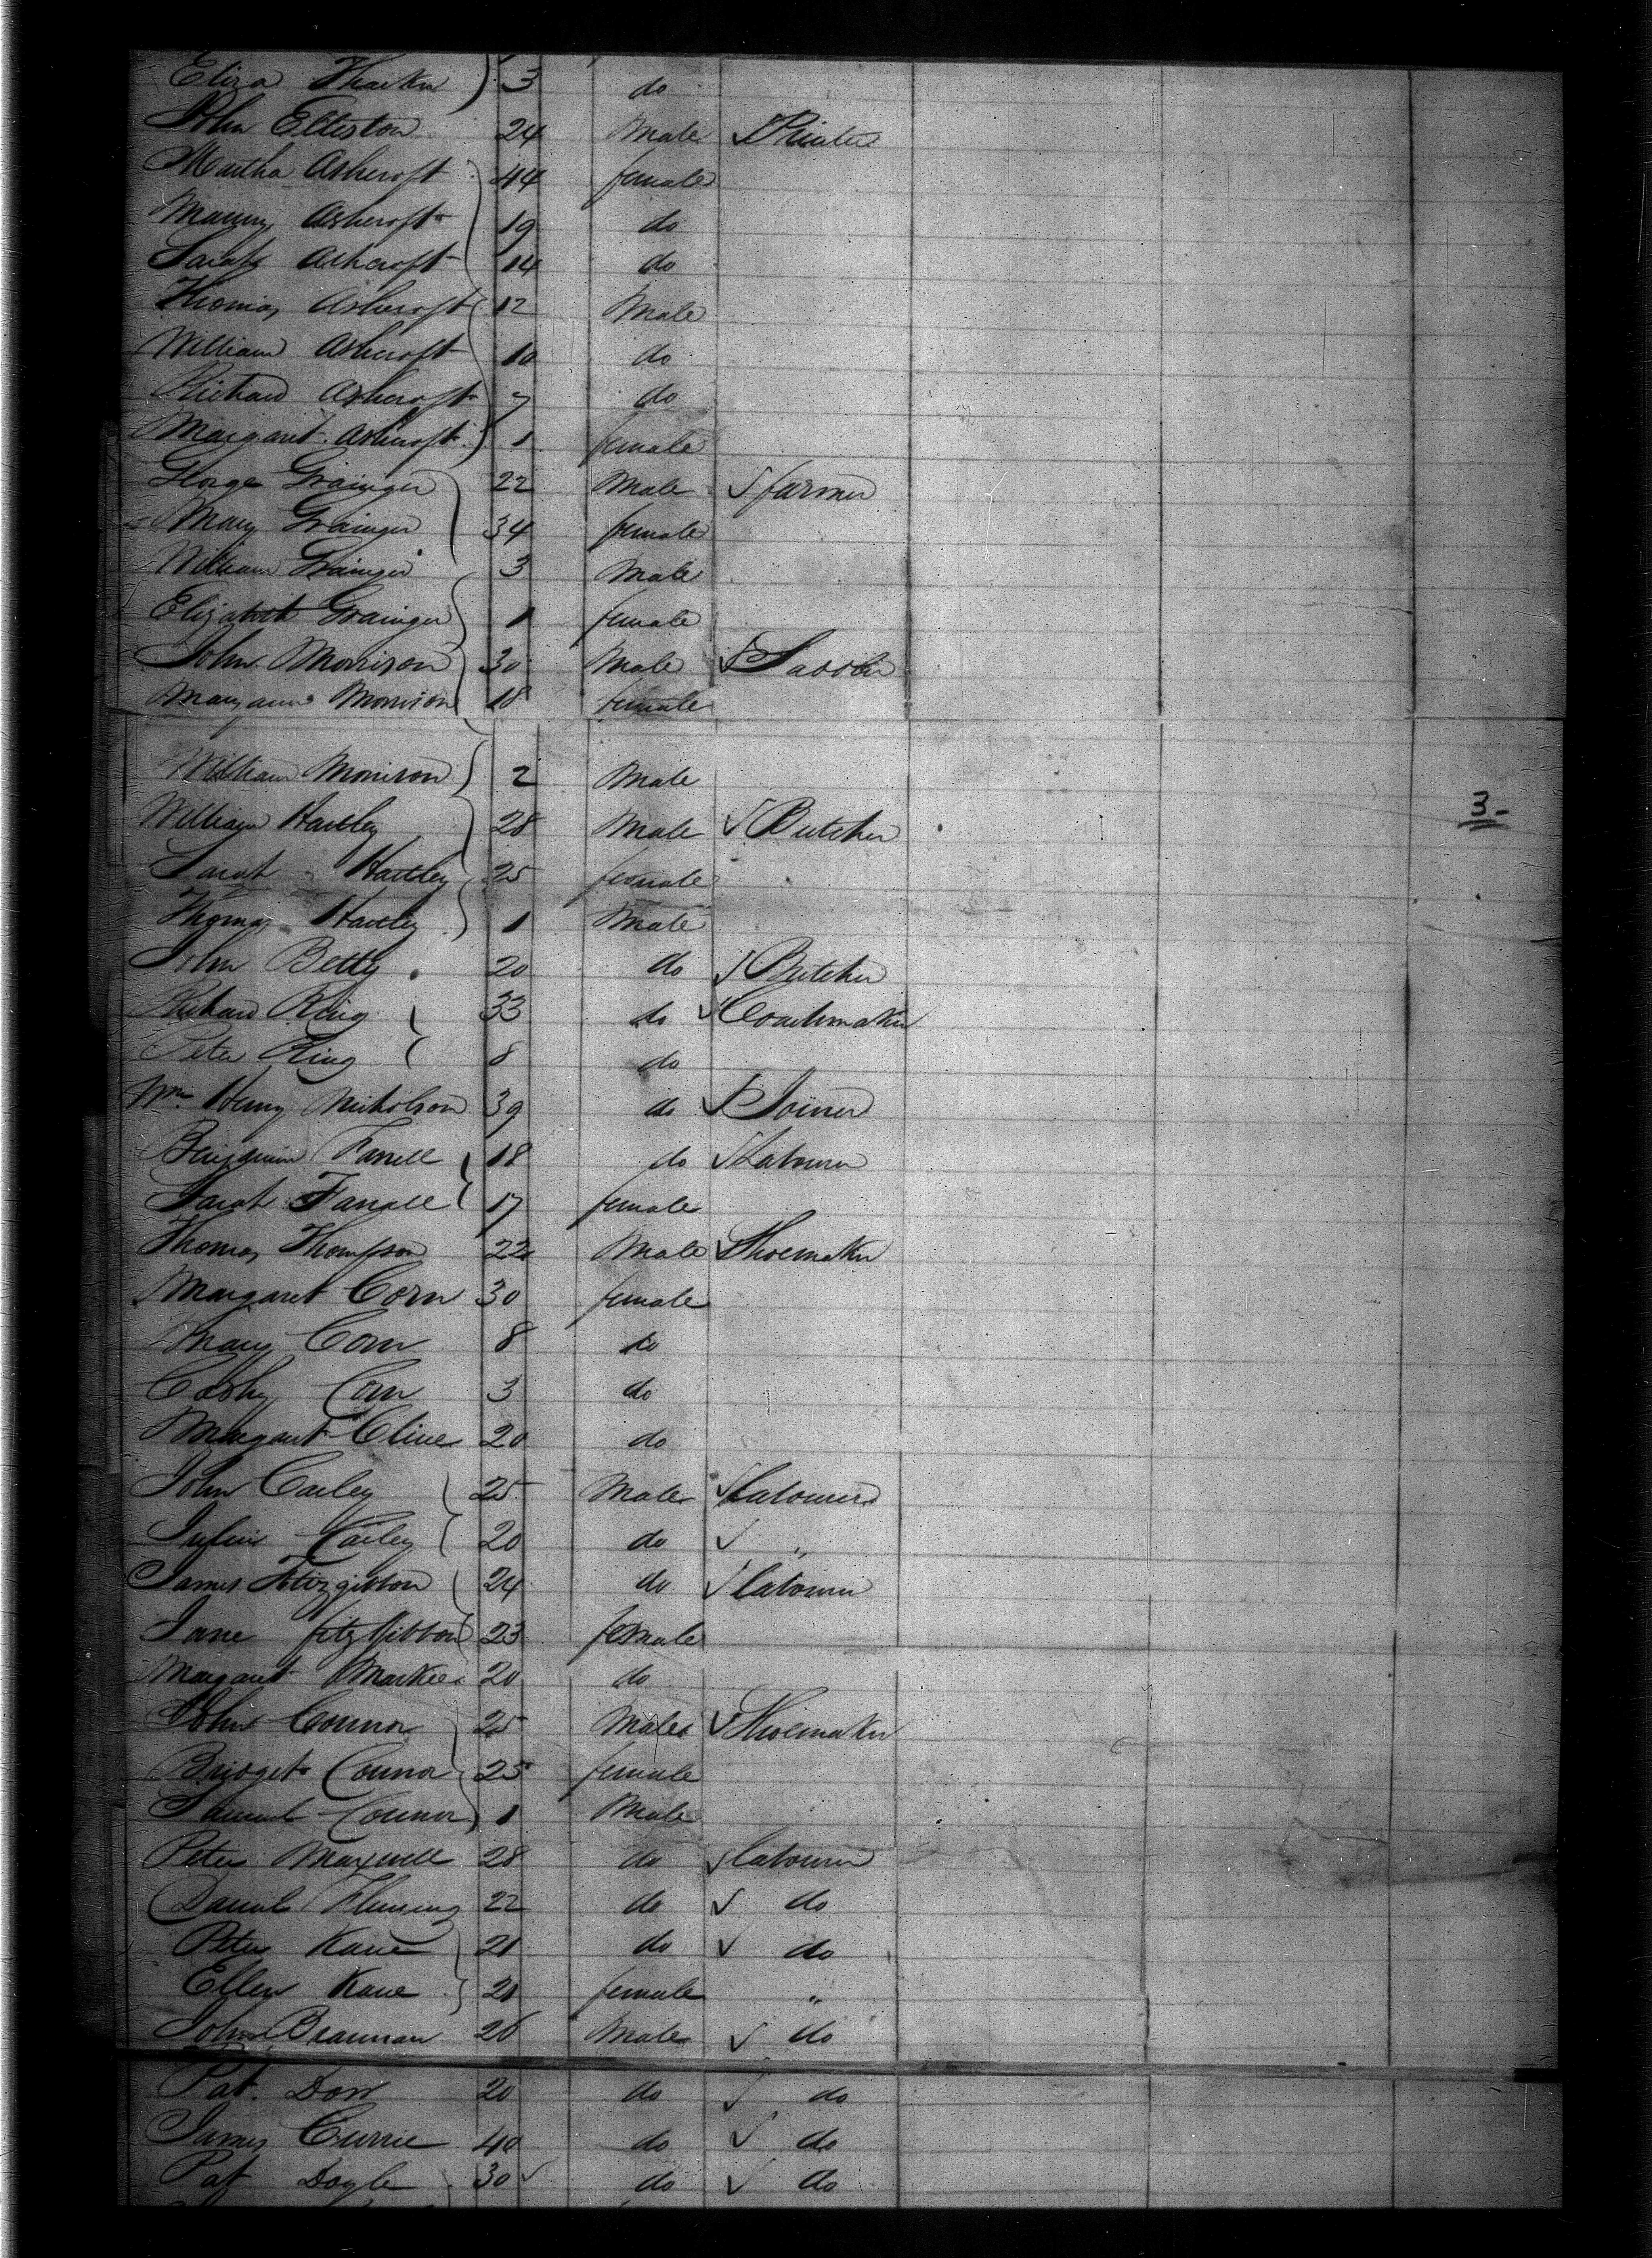 Eliza 3 do
John Elleston 24 Male Printer
Martha Ashcroft 44 female
Ashcroft 19 do
Sarah Ashcroft 14 do
Thomas Ashcroft 12 Male
William Ashcroft 10 do
Richard Ashcroft 7 do
Margaret Ashcroft 1 female
George Grainger 22 Male farmer
Mary Grainger 34 female
William Grainger 3 Male
Elizabeth Grainger 1 female
John Morrison 30 Male
Maryann Morrison 18 female
William Morrison 2 Male
3
William Hartley 28 Male Butcher
Sarah Hartley 25 female
Thomas Hartley 1 Male
John Betty 20 do Butcher
Richard Ring 33 do Coachmaker
Peter Ring 8 do
Wm Henry Nicholson 39 do Joiner
Benjamin Farrell 18 do Labourer
Sarah Farrell 17 female
Thomas Thompson 22 Male Shoemaker
Margaret Corn 30 female
Mary Corn 8 do
Corn 3 do
Margaret Cline 20 do
John Carley 25 Male Labourer
Carley 20 do "
James Fitzgibbon 24 do labourer
Jane fitzGibbon 23 female
Margaret 20 do
John Connor 25 Male Shoemaker
Bridget Connor 25 female
Samuel Connor 1 Male
Peter Maxwell 28 do labourer
Daniel Fleming 22 do do
Peter Kane 21 do do
Ellen Kane 21 female "
John Brannan 26 Male do
Pat. Dorr 20 do do
James Currie 40 do do
Pat Doyle 30 do do